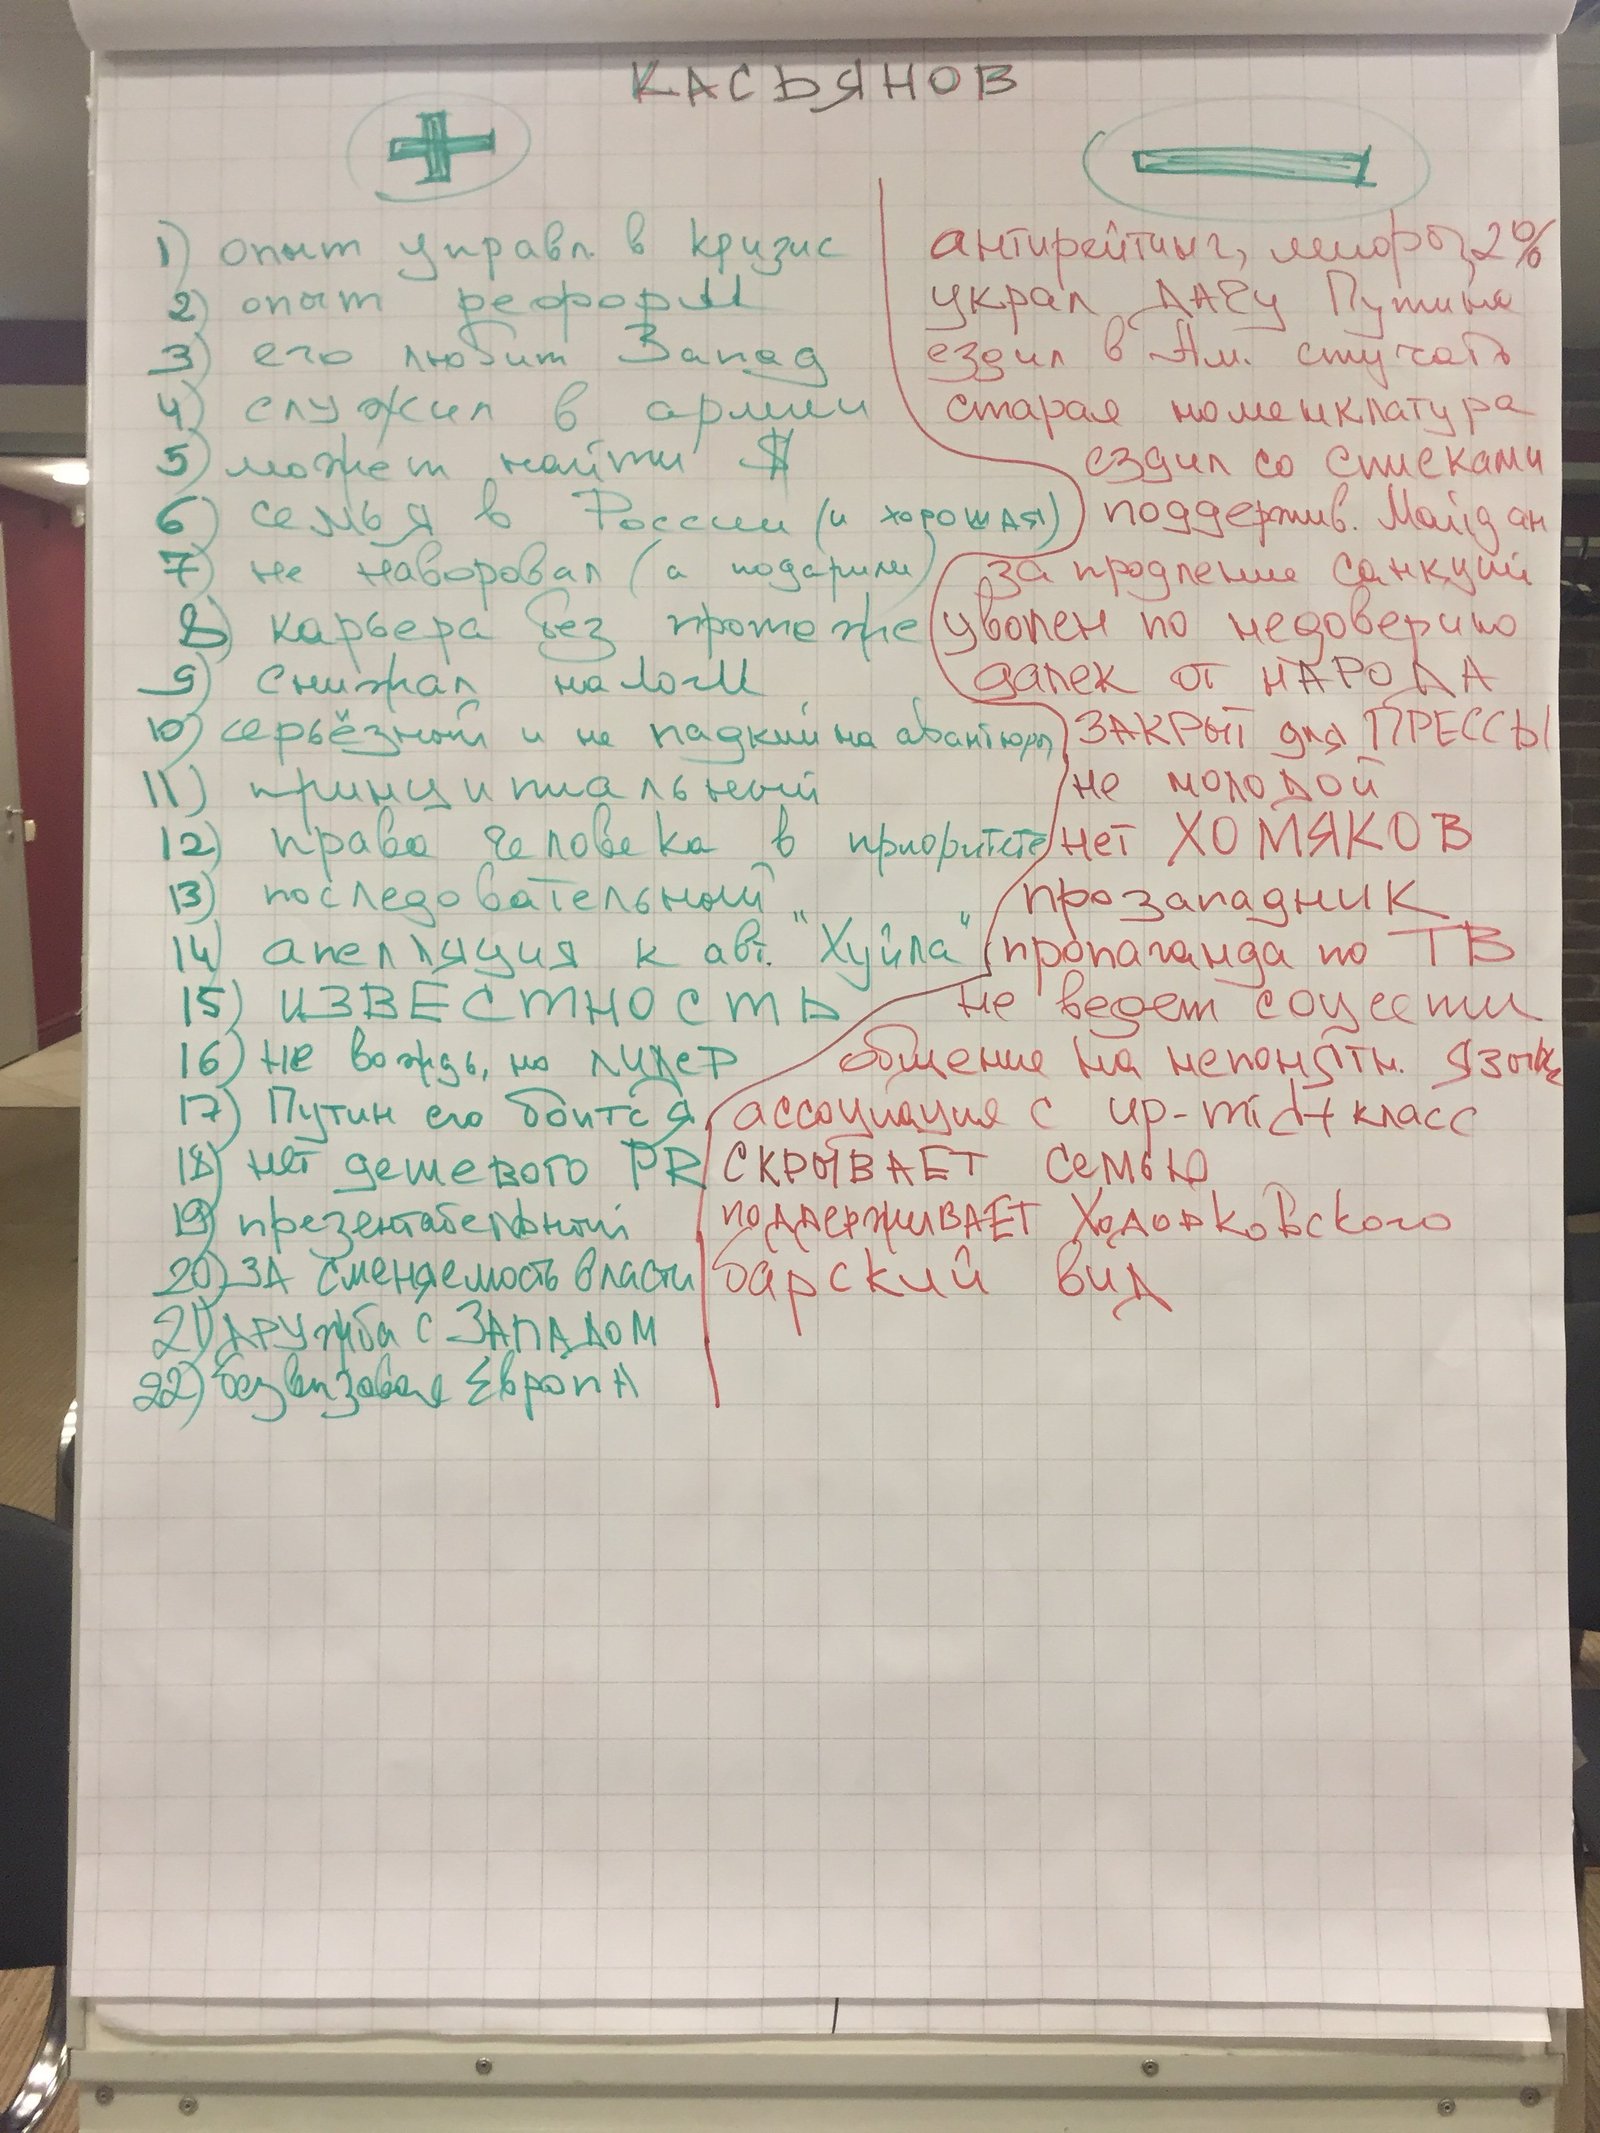 КАСЬЯНОВ
+ −
1) опыт управл. в кризис антирейтинг, мемоы, 2%
2) опыт реформ украл ДАЧу Путина
3) его любит Запад ездил в Ам. стучать
4) служил в армии старая номенклатура
5) может найти $ ездил со списками
6) семья в России (и хорошая) поддержив. Майдан
7) не наворовал (а подарили) за продление санкций
8) карьера без протеже уволен по недоверию
9) снижал налоги далек от НАРОДА
10) серьёзный и не падкий на авантюры ЗАКРЫТ для ПРЕССЫ
11) принципиальный не молодой
12) права человека в приоритете нет ХОМЯКОВ
13) последовательный прозападник
14) апелляция к авт. "Хуйла" пропаганда по ТВ
15) ИЗВЕСТНОСТЬ не ведет соцсети
16) не вождь, но лидер общение на непонятн. языке
17) Путин его боится ассоциация с up-mid+ класс
18) нет дешевого PR СКРЫВАЕТ семью
19) презентабельный поддерживает Ходорковского
20) ЗА сменяемость власти барский вид
21) дружба с ЗАПАДОМ
22) безвизовая ЕвропА